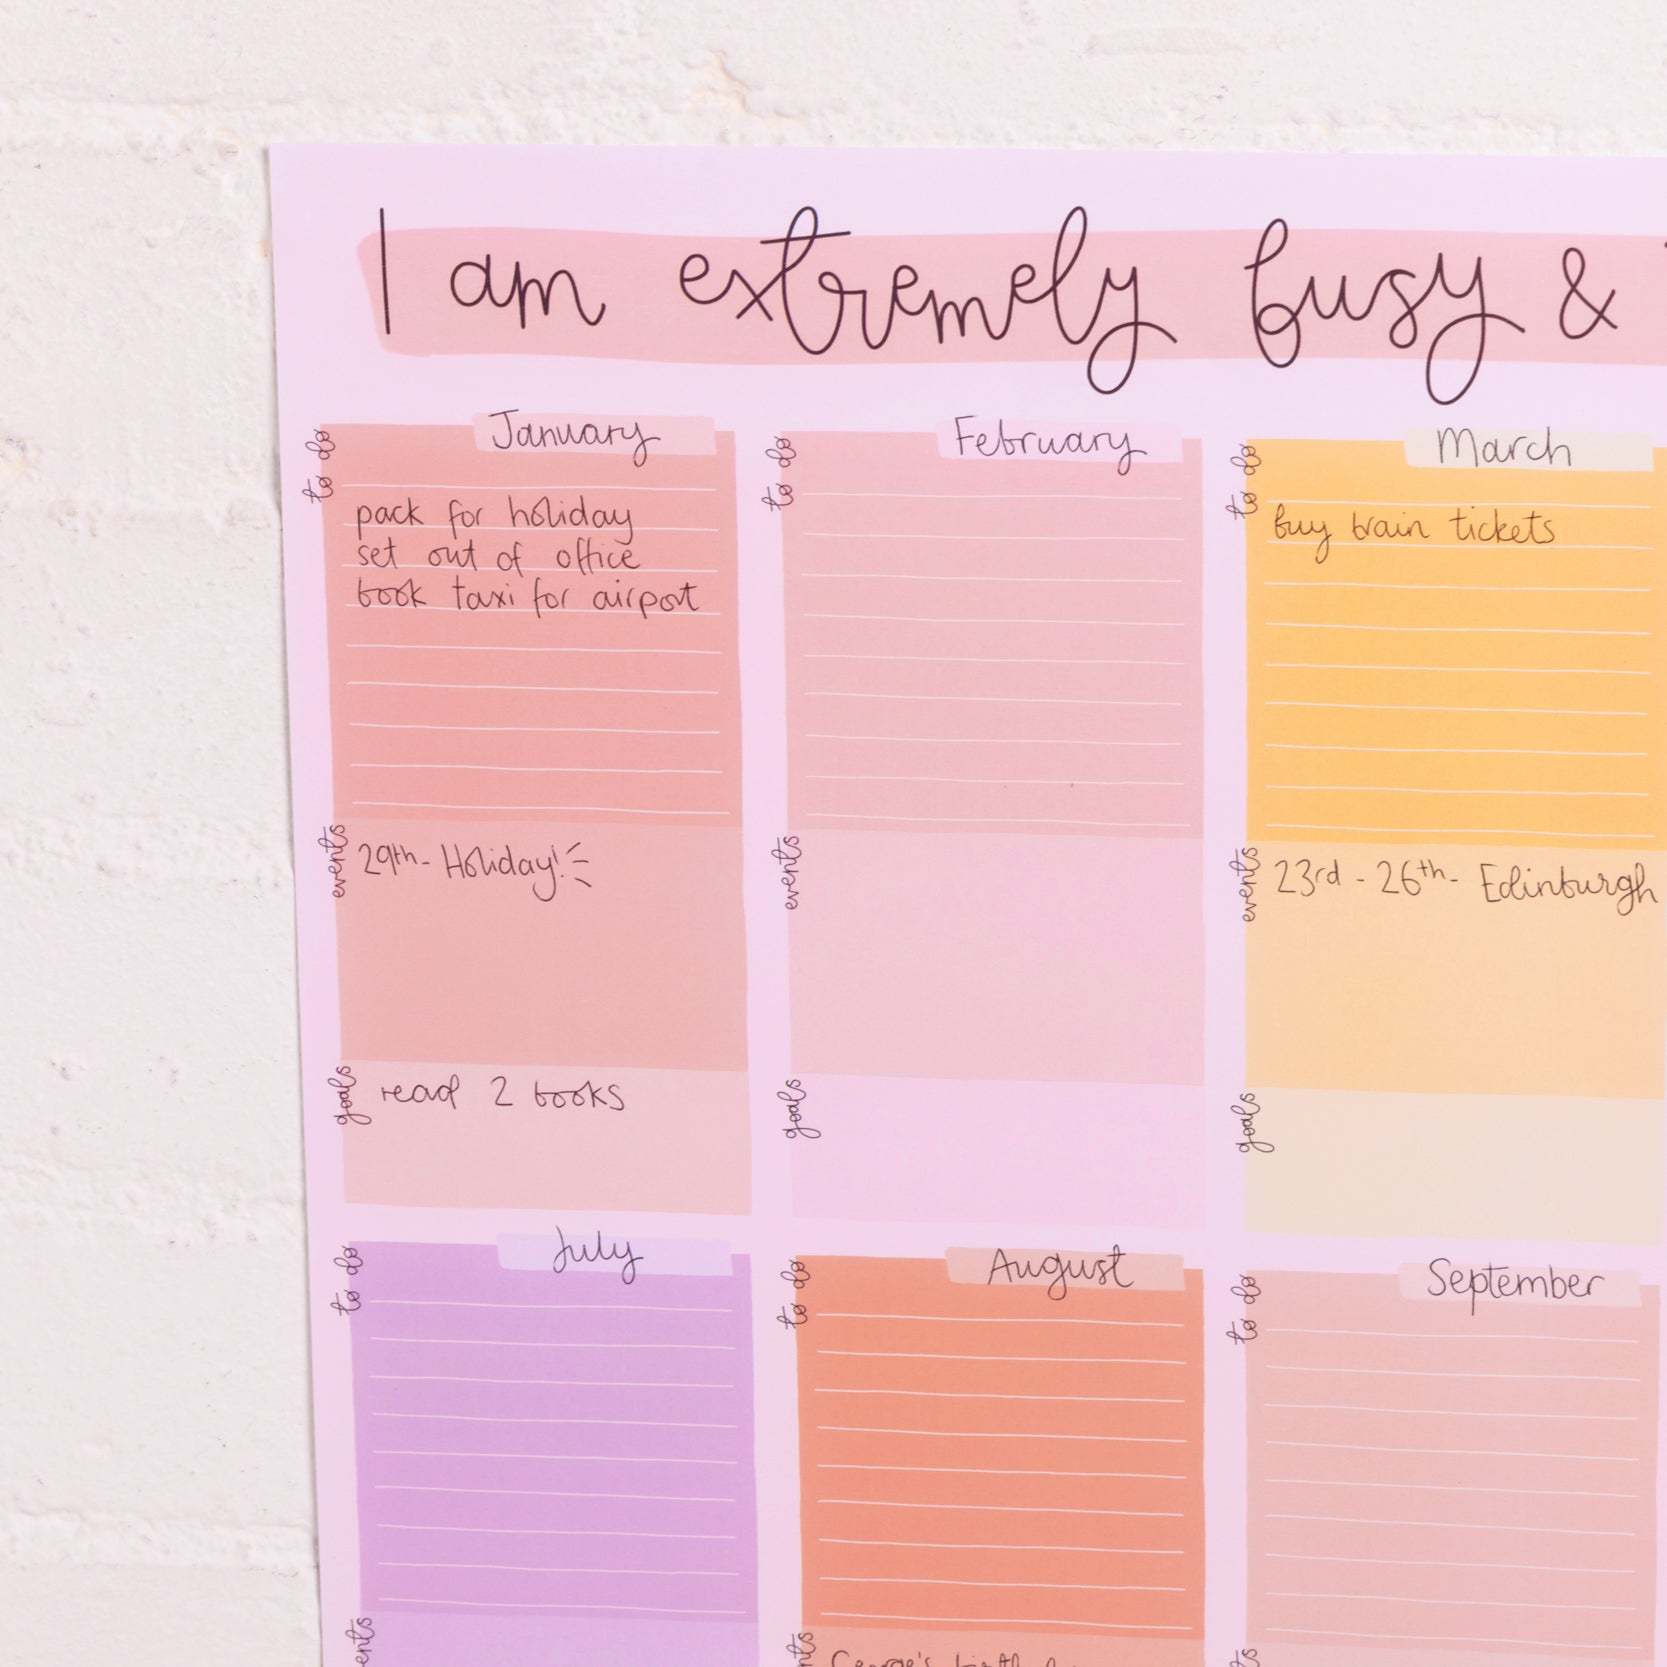 I am extremely busy &
January
to do
pack for holiday
set out of office
book taxi for airport
events
29th- Holiday!
goals
read 2 books
February
to do
events
goals
March
to do
buy train tickets
events
23rd - 26th- Edinburgh
goals
July
to do
August
to do
George's
September
to do